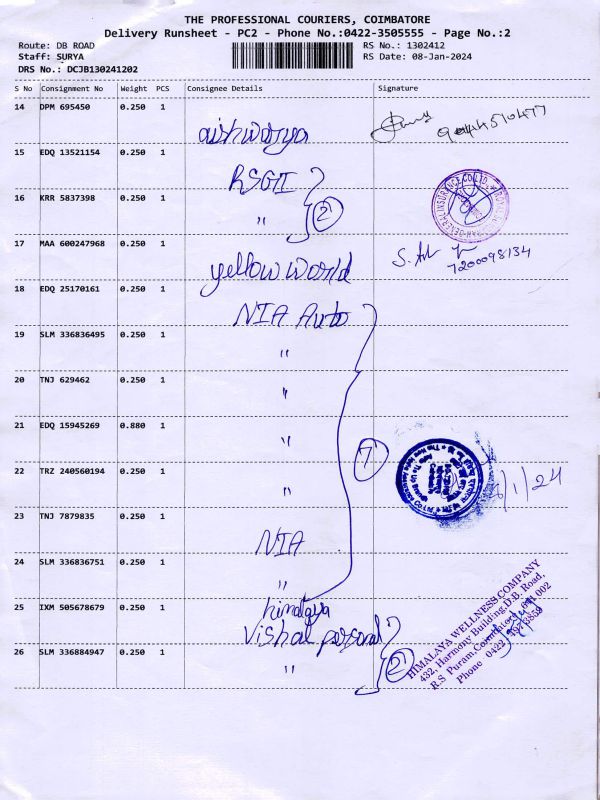 THE PROFESSIONAL COURIERS, COIMBATORE
Delivery Runsheet - PC2 - Phone No.:0422-3505555 - Page No.:2
Route: DB ROAD
Staff: SURYA
DRS No.: DCJB130241202
RS No.: 1302412
RS Date: 08-Jan-2024
S No Consignment No Weight PCS Consignee Details Signature
14 DPM 695450 0.250 1
aishwarya
15 EDQ 13521154 0.250 1
RSGI
16 KRR 5837398 0.250 1
" 2
17 MAA 600247968 0.250 1
yellow world 7200098134
18 EDQ 25170161 0.250 1
NIA Auto
19 SLM 336836495 0.250 1
"
20 TNJ 629462 0.250 1
"
21 EDQ 15945269 0.880 1
" 7
22 TRZ 240560194 0.250 1
" /1/24
23 TNJ 7879835 0.250 1
NIA
24 SLM 336836751 0.250 1
"
25 IXM 505678679 0.250 1
himalaya
Vishal personal
26 SLM 336884947 0.250 1
" 2
HIMALAYA WELLNESS COMPANY
432, Harmony Building, D.B. Road,
R.S Puram, Coimbatore 641 002
Phone 0422